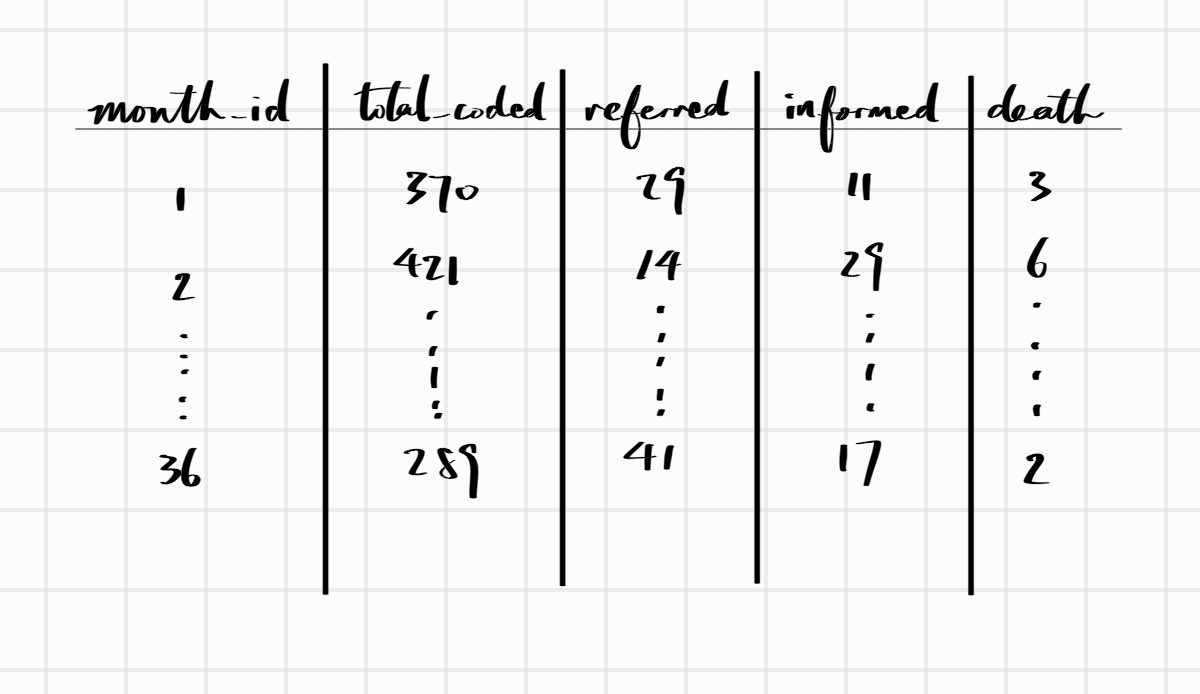 month_id total_coded referred informed death
1 370 29 11 3
2 421 14 29 6
36 289 41 17 2